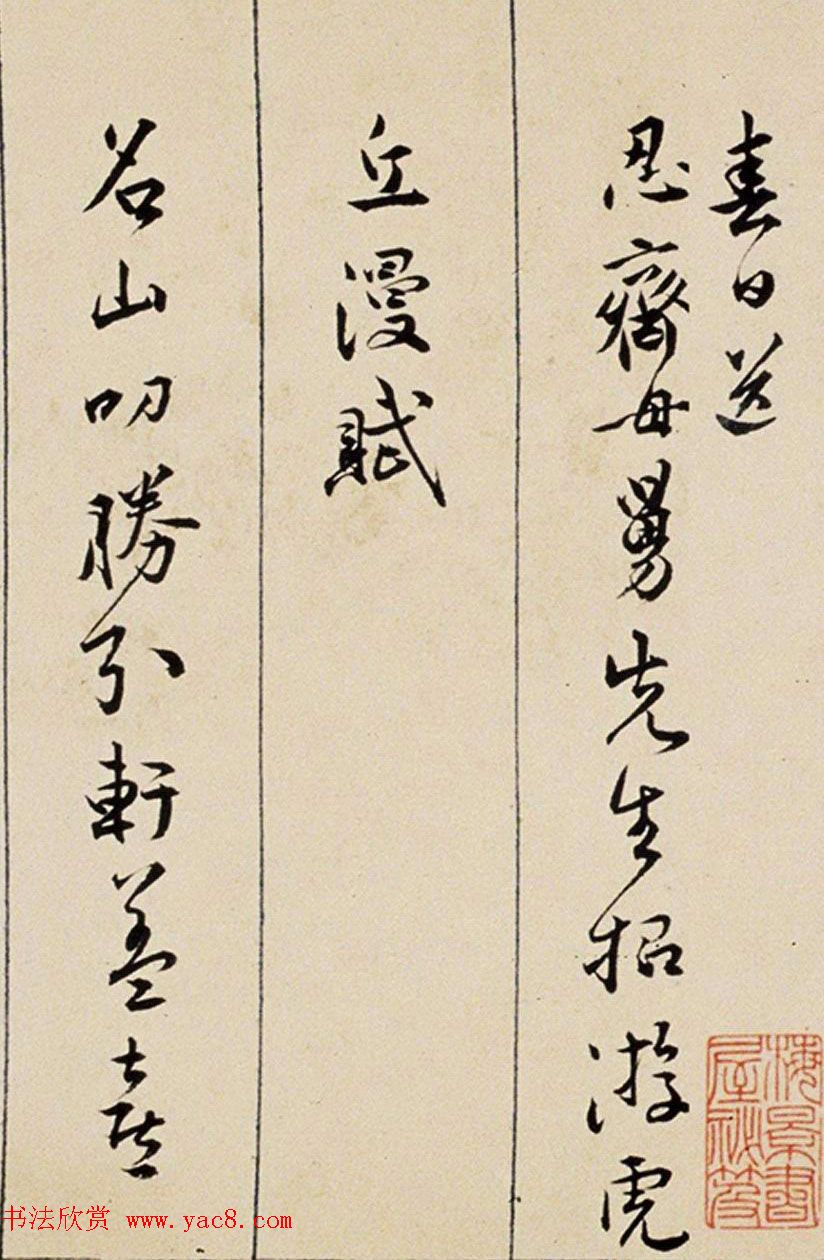 春日送
思齋母舅先生招游虎
丘漫賦
名山叨勝引軒蓋喜
梅景書
屋祕笈
书法欣赏 www.yac8.com